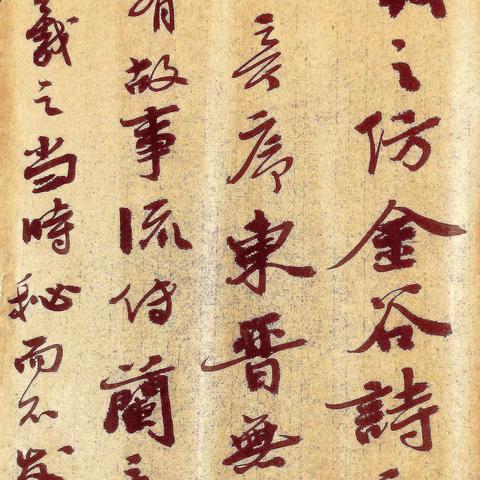 之仿金谷詩
序東晋無
有故事流传蘭
羲之当時秘而不